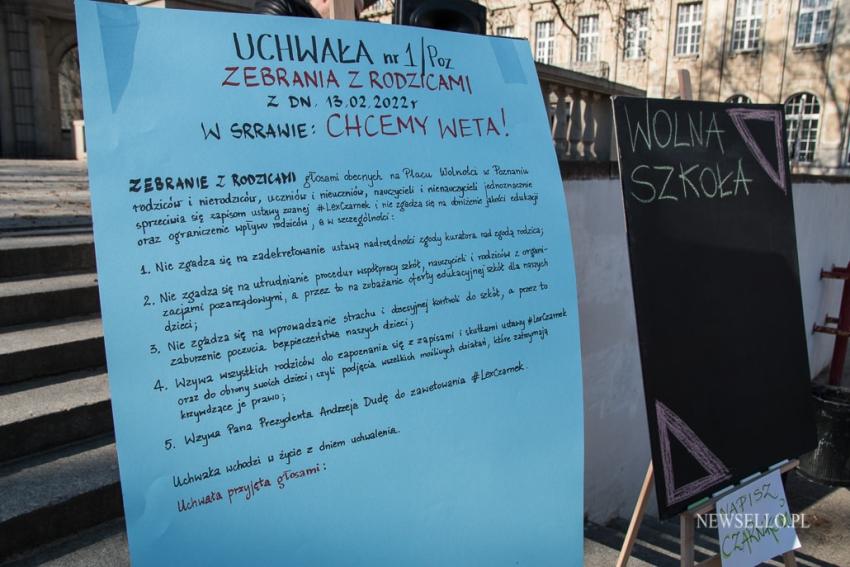 UCHWAŁA nr 1/Poz
ZEBRANIA Z RODZICAMI
Z DN. 13.02.2022r
W SRRAWIE: CHCEMY WETA!
ZEBRANIE Z RODZICAMI głosami obecnych na Placu Wolności w Poznaniu
rodziców i nierodziców, uczniów i nieuczniów, nauczycieli i nienauczycieli jednoznacznie
sprzeciwia się zapisom ustawy zwanej #LexCzarnek i nie zgadza się na obniżenie jakości edukacji
oraz ograniczenie wpływu rodziców, a w szczególności:
1. Nie zgadza się na zadekretowanie ustawą nadrzędności zgody kuratora nad zgodą rodzica;
2. Nie zgadza się na utrudnianie procedur współpracy szkół, nauczycieli i rodziców z organi-
zacjami pozarządowymi, a przez to na zubażanie oferty edukacyjnej szkół dla naszych
dzieci;
3. Nie zgadza się na wprowadzanie strachu i obsesyjnej kontroli do szkół, a przez to
zaburzenie poczucia bezpieczeństwa naszych dzieci;
4. Wzywa wszystkich rodziców do zapoznania się z zapisami i skutkami ustawy #LexCzarnek
oraz do obrony swoich dzieci, czyli podjęcia wszelkich możliwych działań, które zatrzymają
krzywdzące je prawo;
5. Wzywa Pana Prezydenta Andrzeja Dudę do zawetowania #LexCzarnek.
Uchwała wchodzi w życie z dniem uchwalenia.
Uchwała przyjęta głosami:
WOLNA
SZKOŁA
NAPISZ
NEWSELLO.PL